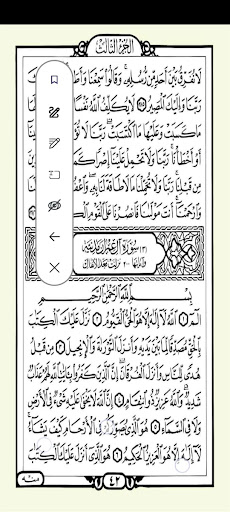 الجزء الثالث
لَا نُفَرِّقُ بَيْنَ أَحَدٍ مِّن رُّسُلِهِ وَقَالُوا سَمِعْنَا وَأَطَعْنَا
رَبَّنَا وَإِلَيْكَ الْمَصِيرُ لَا يُكَلِّفُ اللَّهُ نَفْسًا
مَا كَسَبَتْ وَعَلَيْهَا مَا اكْتَسَبَتْ رَبَّنَا لَا تُؤَاخِذْنَا
أَوْ أَخْطَأْنَا رَبَّنَا وَلَا تَحْمِلْ عَلَيْنَا إِصْرًا كَمَا
مِن قَبْلِنَا رَبَّنَا وَلَا تُحَمِّلْنَا مَا لَا طَاقَةَ لَنَا بِهِ وَاعْفُ
وَارْحَمْنَا أَنتَ مَوْلَانَا فَانصُرْنَا عَلَى الْقَوْمِ
(٣) سُورَةُ آلِ عِمْرَانَ مَدَنِيَّة
بِسْمِ اللَّهِ الرَّحْمَٰنِ الرَّحِيمِ
الم اللَّهُ لَا إِلَٰهَ إِلَّا هُوَ الْحَيُّ الْقَيُّومُ نَزَّلَ عَلَيْكَ الْكِتَابَ
بِالْحَقِّ مُصَدِّقًا لِّمَا بَيْنَ يَدَيْهِ وَأَنزَلَ التَّوْرَاةَ وَالْإِنجِيلَ مِن قَبْلُ
هُدًى لِّلنَّاسِ وَأَنزَلَ الْفُرْقَانَ إِنَّ الَّذِينَ كَفَرُوا بِآيَاتِ اللَّهِ لَهُمْ عَذَابٌ
شَدِيدٌ وَاللَّهُ عَزِيزٌ ذُو انتِقَامٍ إِنَّ اللَّهَ لَا يَخْفَىٰ عَلَيْهِ شَيْءٌ فِي الْأَرْضِ
وَلَا فِي السَّمَاءِ هُوَ الَّذِي يُصَوِّرُكُمْ فِي الْأَرْحَامِ كَيْفَ يَشَاءُ
لَا إِلَٰهَ إِلَّا هُوَ الْعَزِيزُ الْحَكِيمُ هُوَ الَّذِي أَنزَلَ عَلَيْكَ الْكِتَابَ
٤٢
منه